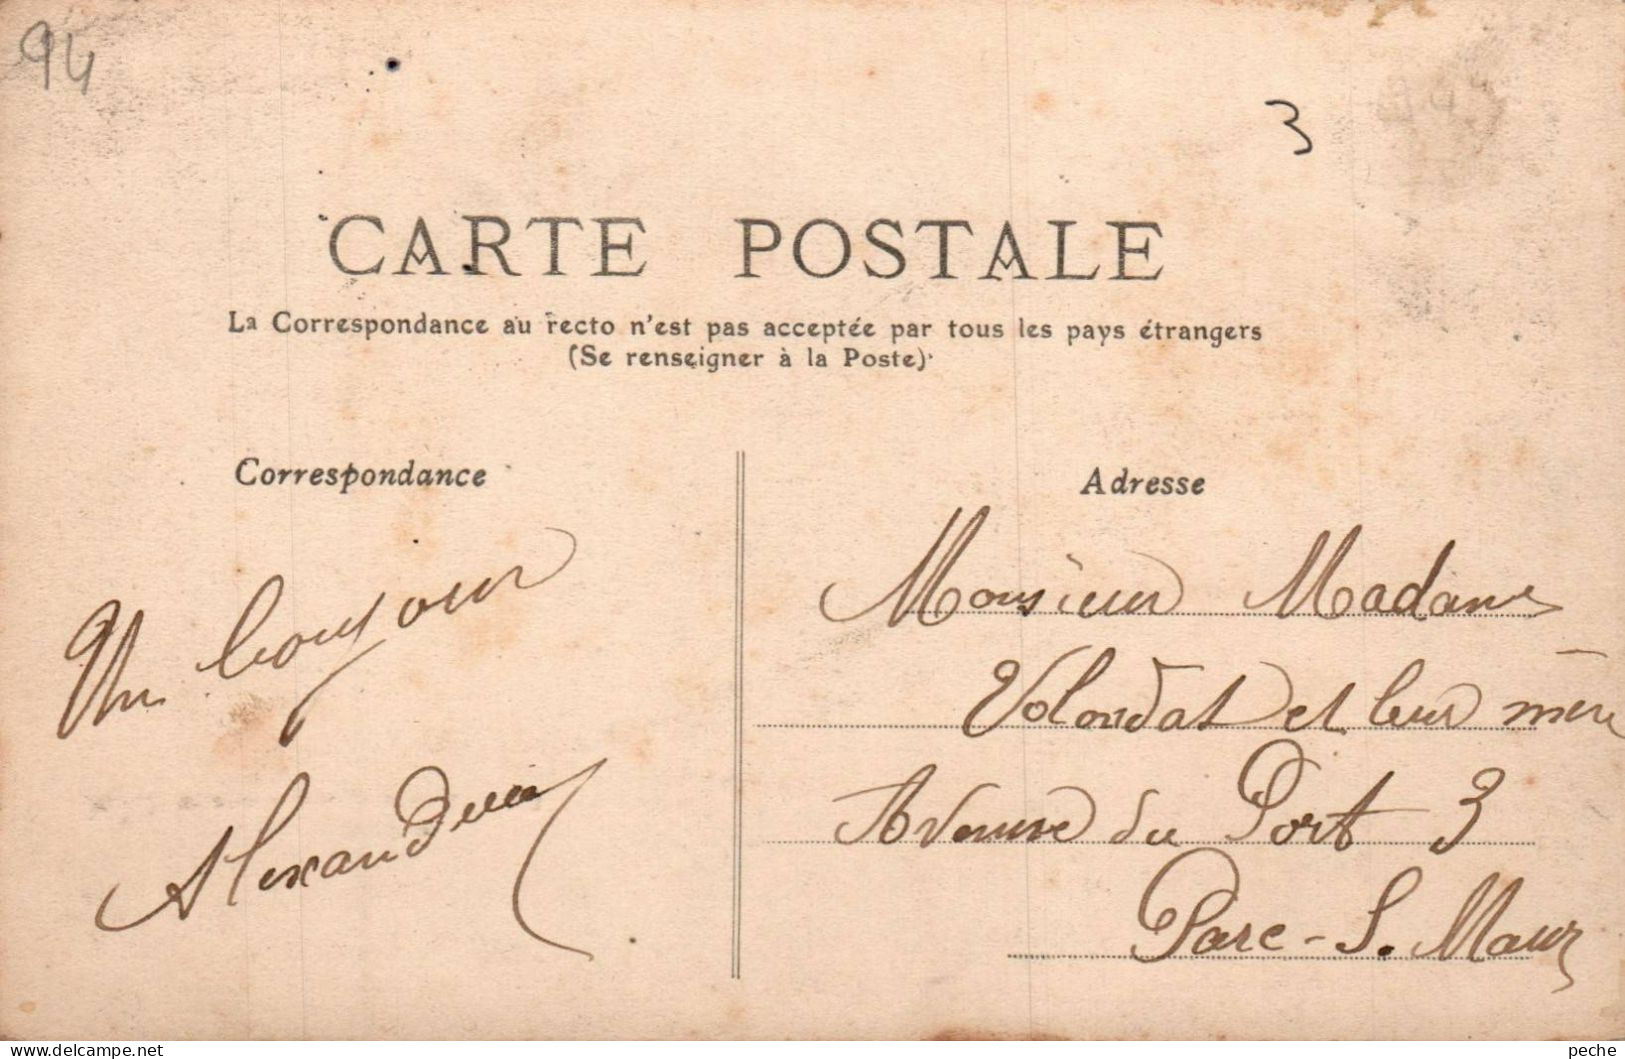 94
3
CARTE POSTALE
La Correspondance au recto n'est pas acceptée par tous les pays étrangers
(Se renseigner à la Poste)
Correspondance
Un bonjour
Adresse
Monsieur Madame
Volondat et leur mère
Avenue du Port 3
Parc-S. Maur
peche